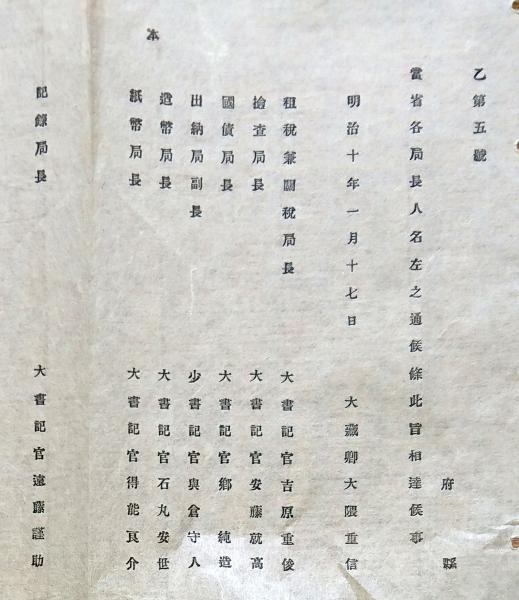 乙第五號
府縣
當省各局長人名左之通候條此旨相達候事
明治十年一月十七日　大藏卿大隈重信
租稅兼關稅局長　大書記官吉原重俊
撿查局長　大書記官安藤就高
國債局長　大書記官鄉　純造
出納局副長　少書記官與倉守人
造幣局長　大書記官石丸安世
紙幣局長　大書記官得能良介
本
記錄局長　大書記官遠藤謹助